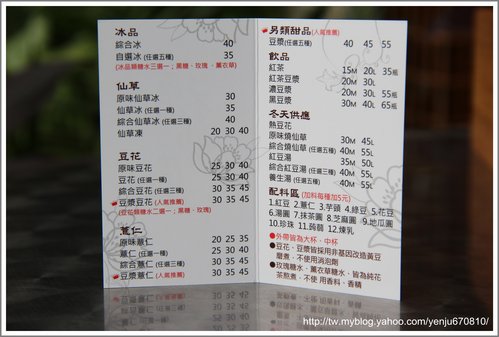 冰品
綜合冰 40
自選冰 (任選五種) 35
(冰品類糖水三選一；黑糖、玫瑰、薰衣草)
仙草
原味仙草冰 30
仙草冰 (任選一種) 35
綜合仙草冰 (任選三種) 40
仙草凍 20 30 40
豆花
原味豆花 25 30 40
豆花 (任選一種) 25 30 40
綜合豆花 (任選三種) 30 35 45
豆漿豆花 (人氣推薦) 30 35 45
(豆花類糖水二選一；黑糖、玫瑰)
薏仁
原味薏仁 20 25 35
薏仁 (任選一種) 25 30 40
綜合薏仁 (任選三種) 30 35 45
豆漿薏仁 (人氣推薦) 30 35 45
另類甜品 (人氣推薦)
豆漿 (任選五種) 40 45 55
飲品
紅茶 15M 20L 35瓶
紅茶豆漿 20M 30L
濃豆漿 20M 30L 55瓶
黑豆漿 30M 40L 65瓶
冬天供應
熱豆花
原味燒仙草 30M 45L
綜合燒仙草 (任選五種) 40M 55L
紅豆湯 35M 50L
綜合紅豆湯 (任選三種) 40M 55L
養生湯 (任選五種) 40M 55L
配料區 (加料每種加5元)
1.紅豆 2.薏仁 3.芋頭 4.綠豆 5.花豆
6.湯圓 7.抹茶圓 8.芝麻圓 9.地瓜圓
10.珍珠 11.蒟蒻 12.煉乳
●外帶皆為大杯、中杯
●豆花、豆漿皆採用非基因改造黃豆
磨煮，不使用消泡劑
●玫瑰糖水、薰衣草糖水，皆為純花
茶熬煮，不使用香料，香精
http://tw.myblog.yahoo.com/yenju670810/